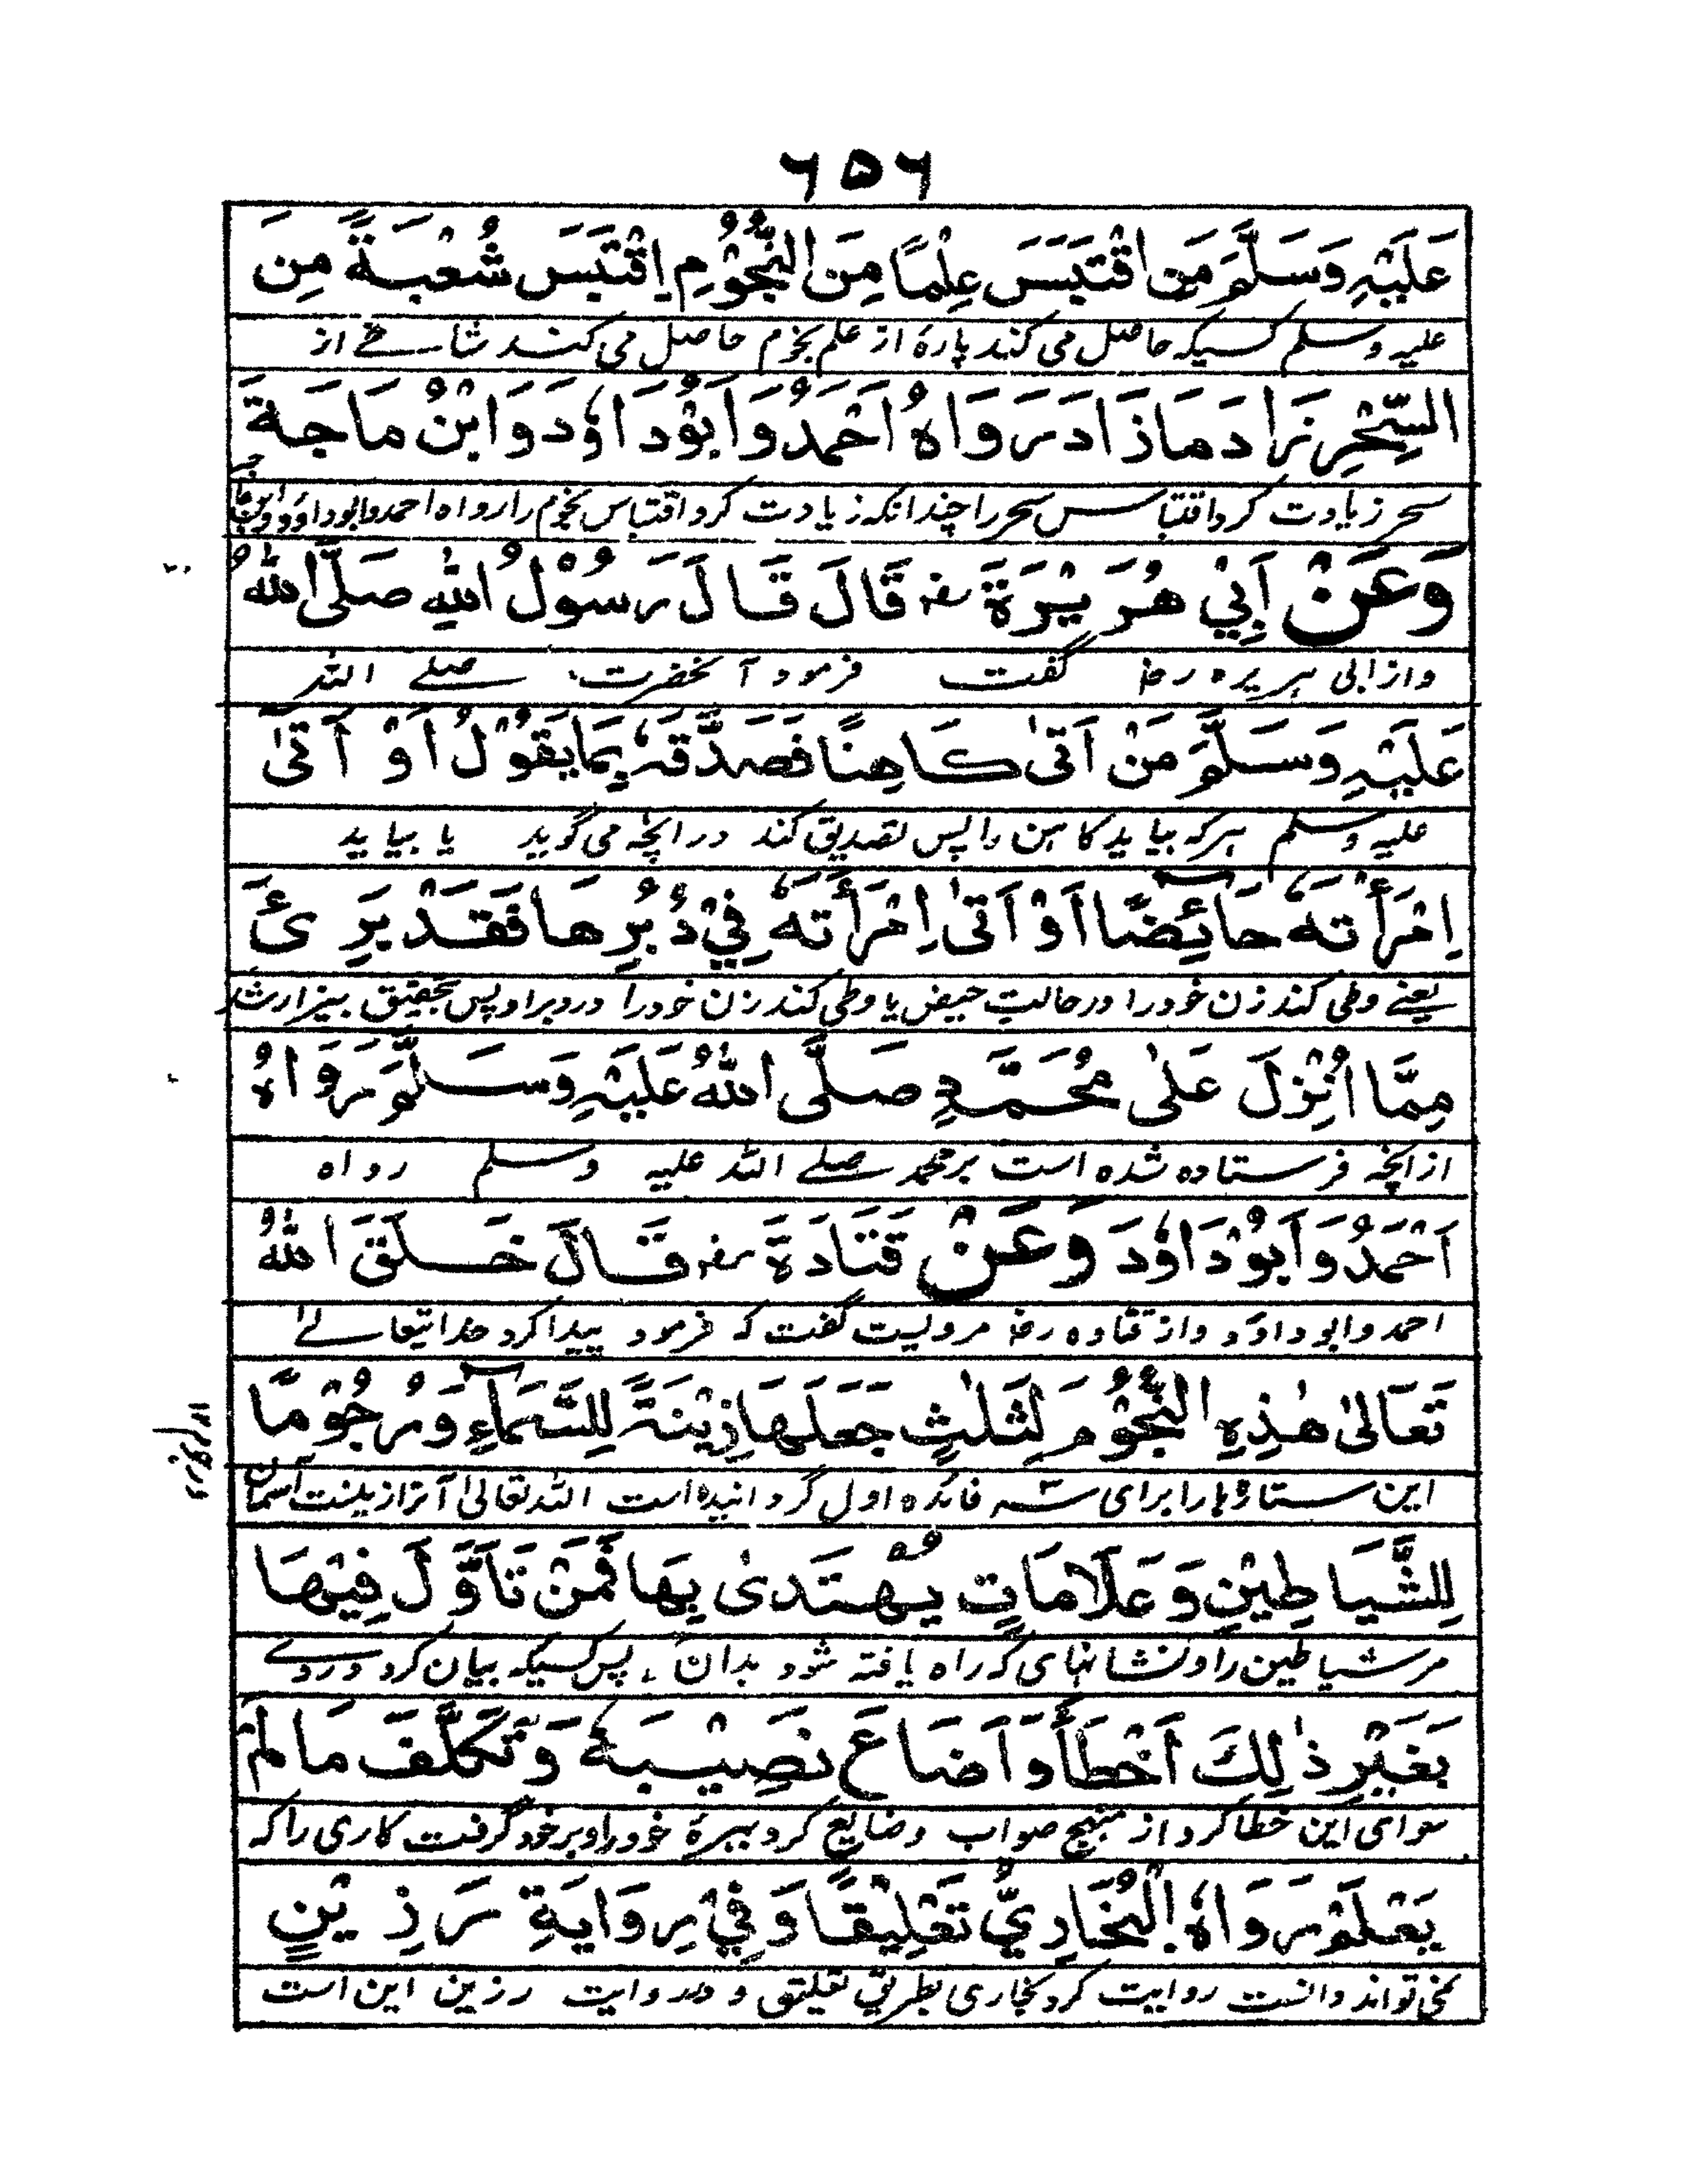 ۶۵۶
عَلَيْهِ وَسَلَّمَ مَنِ اقْتَبَسَ عِلْمًا مِنَ النُّجُوْمِ اِقْتَبَسَ شُعْبَةً مِنَ
علیہ وسلم کسیکہ حاصل می کند پارہ از علم نجوم حاصل می کند شاخے از
السِّحْرِ زَادَ مَا زَادَ رَوَاهُ اَحْمَدُ وَاَبُوْدَاوٗدَ وَابْنُ مَاجَةَ
سحر زیادت کرد اقتباس سحر را چندانکہ زیادت کرد اقتباس نجوم را رواہ احمد وابوداؤد وابن ماجہ
وَعَنْ اَبِيْ هُرَيْرَةَ رض قَالَ قَالَ رَسُوْلُ اللهِ صَلَّى اللهُ
واز ابی ہریرہ رض گفت فرمود آنحضرت صلے اللہ
عَلَيْهِ وَسَلَّمَ مَنْ اَتٰى كَاهِنًا فَصَدَّقَهٗ بِمَا يَقُوْلُ اَوْ اَتٰى
علیہ وسلم ہرکہ بیاید کاہن را پس تصدیق کند در انچہ می گوید یا بیاید
اِمْرَأَتَهٗ حَائِضًا اَوْ اَتٰى اِمْرَأَتَهٗ فِيْ دُبُرِهَا فَقَدْ بَرِئَ
یعنے وطی کند زن خود را در حالت حیض یا وطی کند زن خود را در دبر او پس بتحقیق بیزار شد
مِمَّا اُنْزِلَ عَلٰى مُحَمَّدٍ صَلَّى اللهُ عَلَيْهِ وَسَلَّمَ رَوَاهُ
از انچہ فرستادہ شدہ است بر محمد صلے اللہ علیہ وسلم رواہ
اَحْمَدُ وَاَبُوْدَاوٗدَ وَعَنْ قَتَادَةَ رض قَالَ خَلَقَ اللهُ
احمد وابوداؤد واز قتادہ رض مرویست گفت کہ فرمود پیدا کرد خدایتعالےٰ
تَعَالٰى هٰذِهِ النُّجُوْمَ لِثَلٰثٍ جَعَلَهَا زِيْنَةً لِلسَّمَآءِ وَرُجُوْمًا
این ستارہ ہا را برای سہ فائدہ اول گردانیدہ است اللہ تعالیٰ آنرا زینت آسمان
لِلشَّيَاطِيْنِ وَعَلَامَاتٍ يُهْتَدٰى بِهَا فَمَنْ تَاَوَّلَ فِيْهَا
مر شیاطین را ونشانہای کہ راہ یافتہ شود بدان، پس کسیکہ بیان کرد در وے
بِغَيْرِ ذٰلِكَ اَخْطَأَ وَاَضَاعَ نَصِيْبَهٗ وَتَكَلَّفَ مَا لَمْ
سوای این خطا کرد از منہج صواب وضایع کرد بہرۂ خود را وبر خود گرفت کاری را کہ
يَعْلَمْ رَوَاهُ الْبُخَارِيُّ تَعْلِيْقًا وَفِيْ رِوَايَةِ رَزِيْنٍ
نمی تواند دانست روایت کرد بخاری بطریق تعلیق و در روایت رزین این است